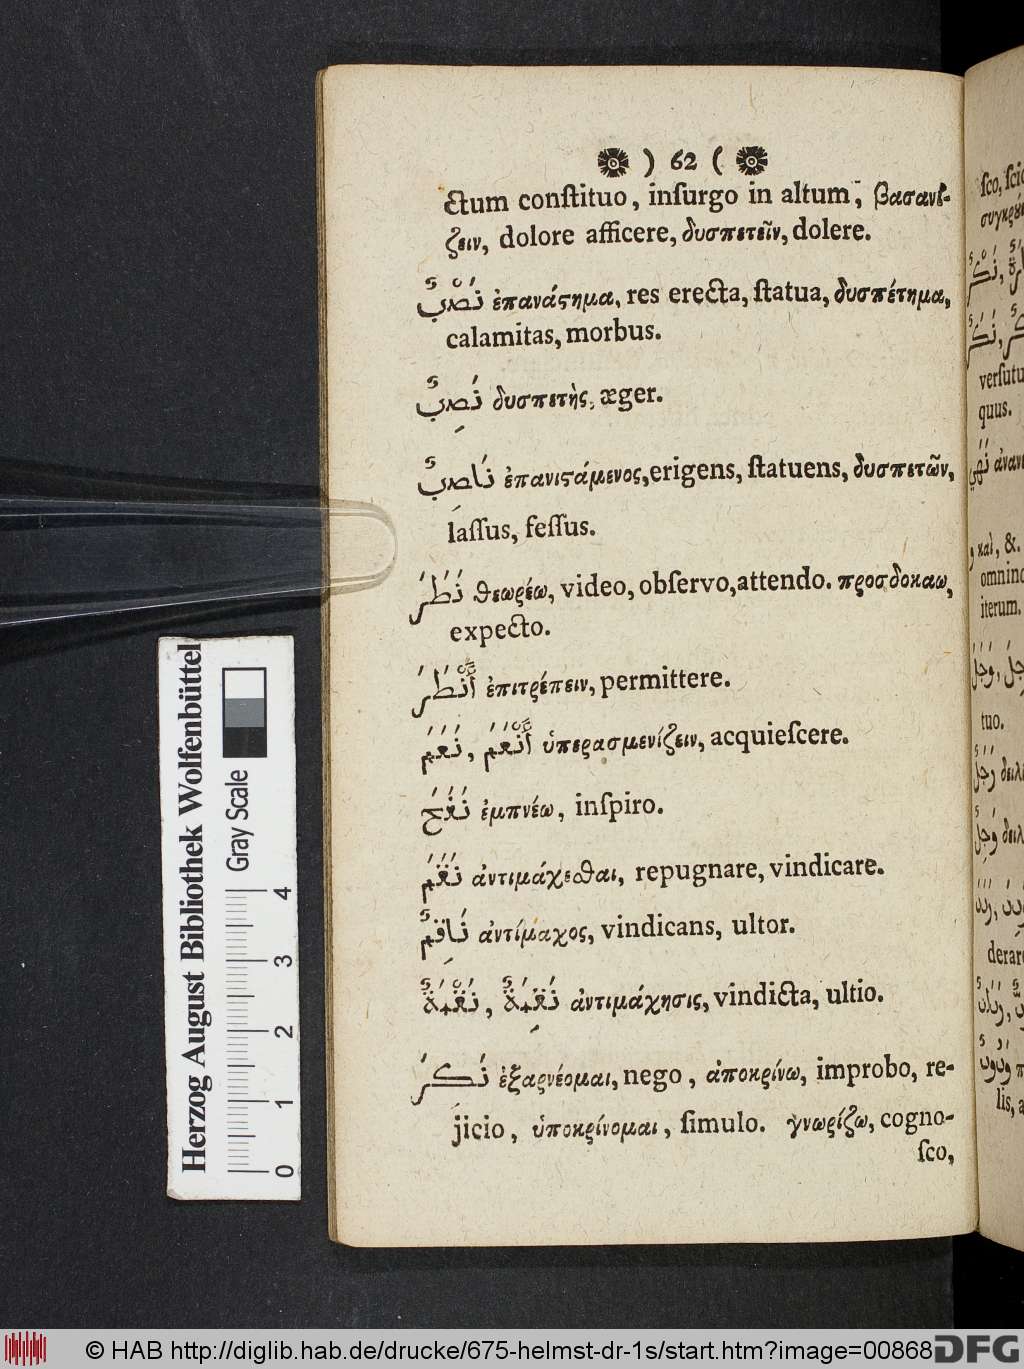 ) 62 (
ctum constituo, insurgo in altum, βασανί-
ζειν, dolore afficere, δυσπετεῖν, dolere.
نَصْبٌ ἐπανάστημα, res erecta, statua, δυσπέτημα,
calamitas, morbus.
نَصِبٌ δυσπετὴς, æger.
نَاصِبٌ ἐπανιστάμενος, erigens, statuens, δυσπετῶν,
lassus, fessus.
نَظَرَ θεωρέω, video, observo, attendo. προσδοκαω,
expecto.
أَنْظَرَ ἐπιτρέπειν, permittere.
نَعَمَ, أَنْعَمَ ὑπερασμενίζειν, acquiescere.
نَفَخَ ἐμπνέω, inspiro.
نَقَمَ ἀντιμάχεσθαι, repugnare, vindicare.
نَاقِمٌ ἀντίμαχος, vindicans, ultor.
نَقْمَةٌ, نَقِمَةٌ ἀντιμάχησις, vindicta, ultio.
نَكِرَ ἐξαρνέομαι, nego, ἀποκρίνω, improbo, re-
jicio, ὑποκρίνομαι, simulo. γνωρίζω, cogno-
sco,
sco,
verсutu
quus.
καὶ, &.
iterum.
tuo.
Herzog August Bibliothek Wolfenbüttel
Gray Scale
0 1 2 3 4
© HAB http://diglib.hab.de/drucke/675-helmst-dr-1s/start.htm?image=00868
DFG